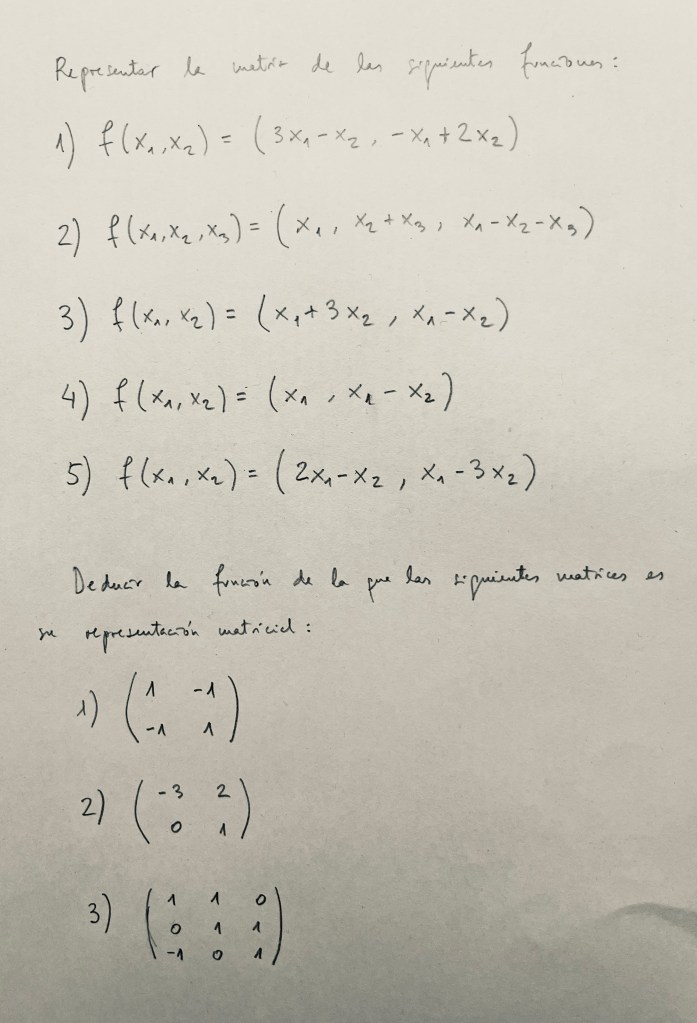 Representar la matriz de las siguientes funciones:
1) f(x₁,x₂) = (3x₁-x₂, -x₁+2x₂)
2) f(x₁,x₂,x₃) = (x₁, x₂+x₃, x₁-x₂-x₃)
3) f(x₁,x₂) = (x₁+3x₂, x₁-x₂)
4) f(x₁,x₂) = (x₁, x₁-x₂)
5) f(x₁,x₂) = (2x₁-x₂, x₁-3x₂)
Deducir la función de la que las siguientes matrices es
su representación matricial:
1) (1 -1
-1 1)
2) (-3 2
0 1)
3) (1 1 0
0 1 1
-1 0 1)